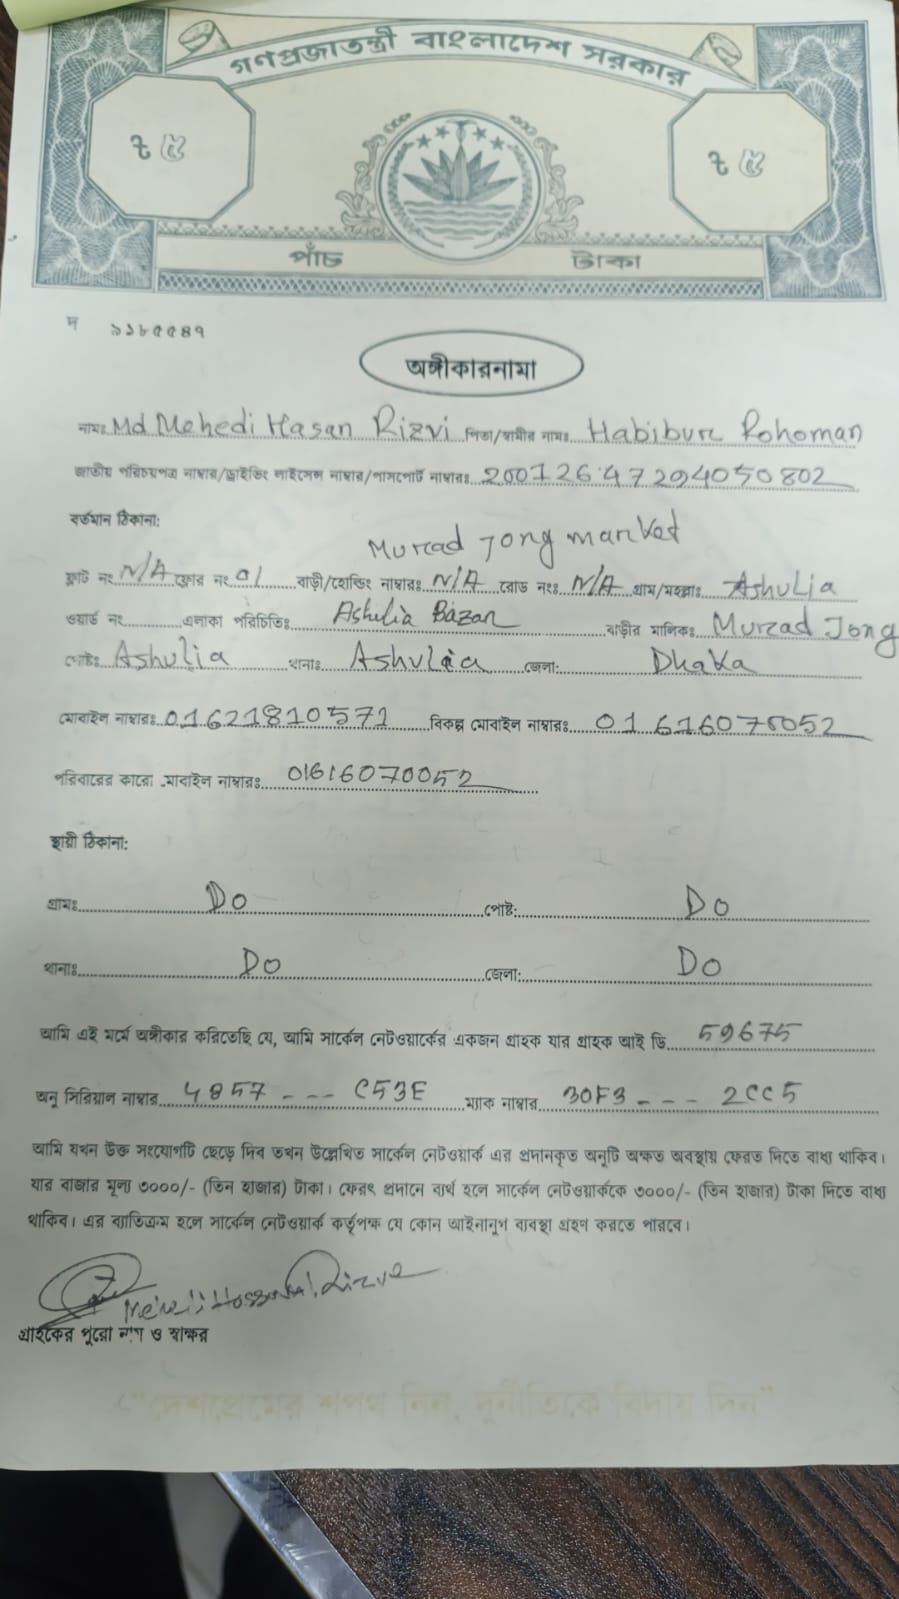 গণপ্রজাতন্ত্রী বাংলাদেশ সরকার
৳ ৫ ৳ ৫
পাঁচ টাকা
দ ৯১৮৫৫৪৭
অঙ্গীকারনামা
নামঃ Md Mehedi Hasan Rizvi পিতা/স্বামীর নামঃ Habibur Rohoman
জাতীয় পরিচয়পত্র নাম্বার/ড্রাইভিং লাইসেন্স নাম্বার/পাসপোর্ট নাম্বারঃ 20012647204050802
বর্তমান ঠিকানা:
Murad Jong market
ফ্লাট নং N/A ফ্লোর নং 01 বাড়ী/হোল্ডিং নাম্বারঃ N/A রোড নংঃ N/A গ্রাম/মহল্লাঃ Ashulia
ওয়ার্ড নং এলাকা পরিচিতিঃ Ashulia Bazar বাড়ীর মালিকঃ Murad Jong
পোষ্টঃ Ashulia থানাঃ Ashulia জেলা: Dhaka
মোবাইল নাম্বারঃ 01621810571 বিকল্প মোবাইল নাম্বারঃ 01616070052
পরিবারের কারো মোবাইল নাম্বারঃ 01616070052
স্থায়ী ঠিকানা:
গ্রামঃ Do পোষ্ট: Do
থানাঃ Do জেলা: Do
আমি এই মর্মে অঙ্গীকার করিতেছি যে, আমি সার্কেল নেটওয়ার্কের একজন গ্রাহক যার গ্রাহক আই ডি 59675
অনু সিরিয়াল নাম্বার 4857 --- C53E ম্যাক নাম্বার 30F3 --- 2CC5
আমি যখন উক্ত সংযোগটি ছেড়ে দিব তখন উল্লেখিত সার্কেল নেটওয়ার্ক এর প্রদানকৃত অনুটি অক্ষত অবস্থায় ফেরত দিতে বাধ্য থাকিব।
যার বাজার মূল্য ৩০০০/- (তিন হাজার) টাকা। ফেরৎ প্রদানে ব্যর্থ হলে সার্কেল নেটওয়ার্ককে ৩০০০/- (তিন হাজার) টাকা দিতে বাধ্য
থাকিব। এর ব্যাতিক্রম হলে সার্কেল নেটওয়ার্ক কর্তৃপক্ষ যে কোন আইনানুগ ব্যবস্থা গ্রহণ করতে পারবে।
গ্রাহকের পুরো নাম ও স্বাক্ষর
"দেশপ্রেমের শপথ নিন, দুর্নীতিকে বিদায় দিন"